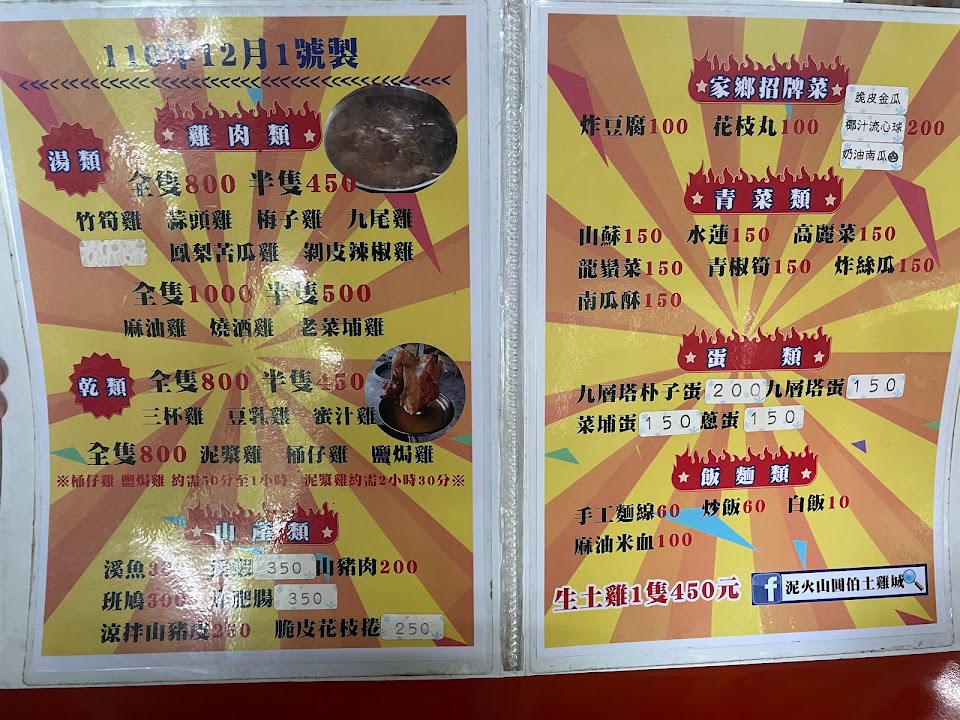 110年12月1號製
雞肉類
湯類
全隻800 半隻450
竹筍雞 蒜頭雞 梅子雞 九尾雞
鳳梨苦瓜雞 剝皮辣椒雞
全隻1000 半隻500
麻油雞 燒酒雞 老菜埔雞
乾類
全隻800 半隻450
三杯雞 豆乳雞 蜜汁雞
全隻800 泥漿雞 桶仔雞 鹽焗雞
※桶仔雞 鹽焗雞 約需50分至1小時 泥漿雞約需2小時30分※
山產類
溪魚 溪蝦350 山豬肉200
班鳩300 炸肥腸350
涼拌山豬皮250 脆皮花枝捲250
家鄉招牌菜
炸豆腐100 花枝丸100
脆皮金瓜
椰汁流心球200
奶油南瓜
青菜類
山蘇150 水蓮150 高麗菜150
龍鬚菜150 青椒筍150 炸絲瓜150
南瓜酥150
蛋類
九層塔朴子蛋200 九層塔蛋150
菜埔蛋150 蔥蛋150
飯麵類
手工麵線60 炒飯60 白飯10
麻油米血100
生土雞1隻450元
f 泥火山圓伯土雞城